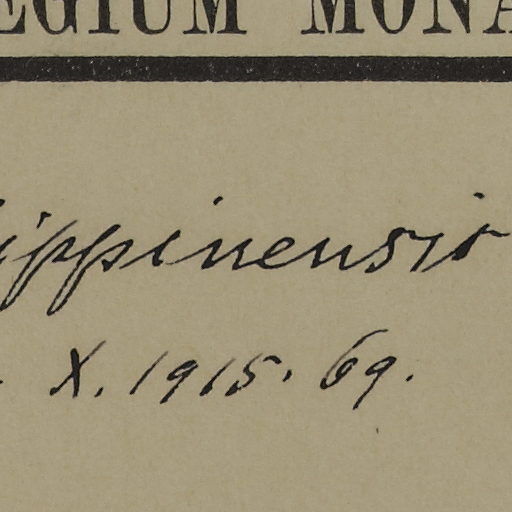 EGIUM MONA
ippinensis
X. 1915. 69.